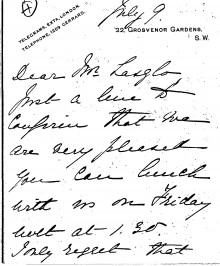 July 9
TELEGRAMS, EXTA, LONDON.
TELEPHONE, 1209 GERRARD.
22, GROSVENOR GARDENS,
S.W.
Dear Mr Laszlo
Just a line to
confirm that we
are very pleased
you can lunch
with us on Friday
next at 1.30.
I only regret that